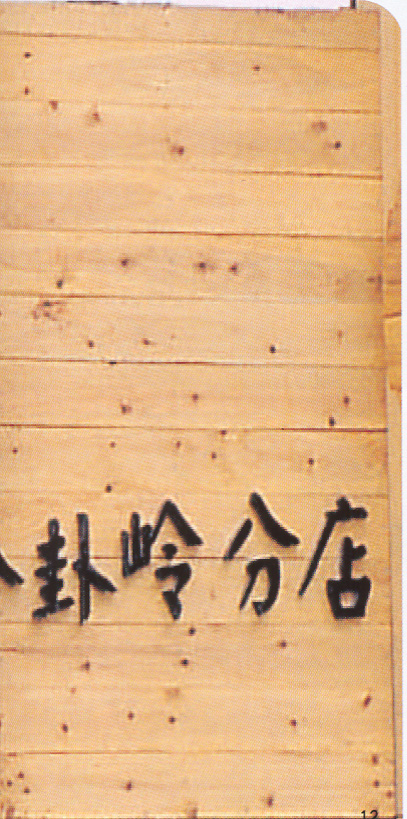 八卦岭分店
12